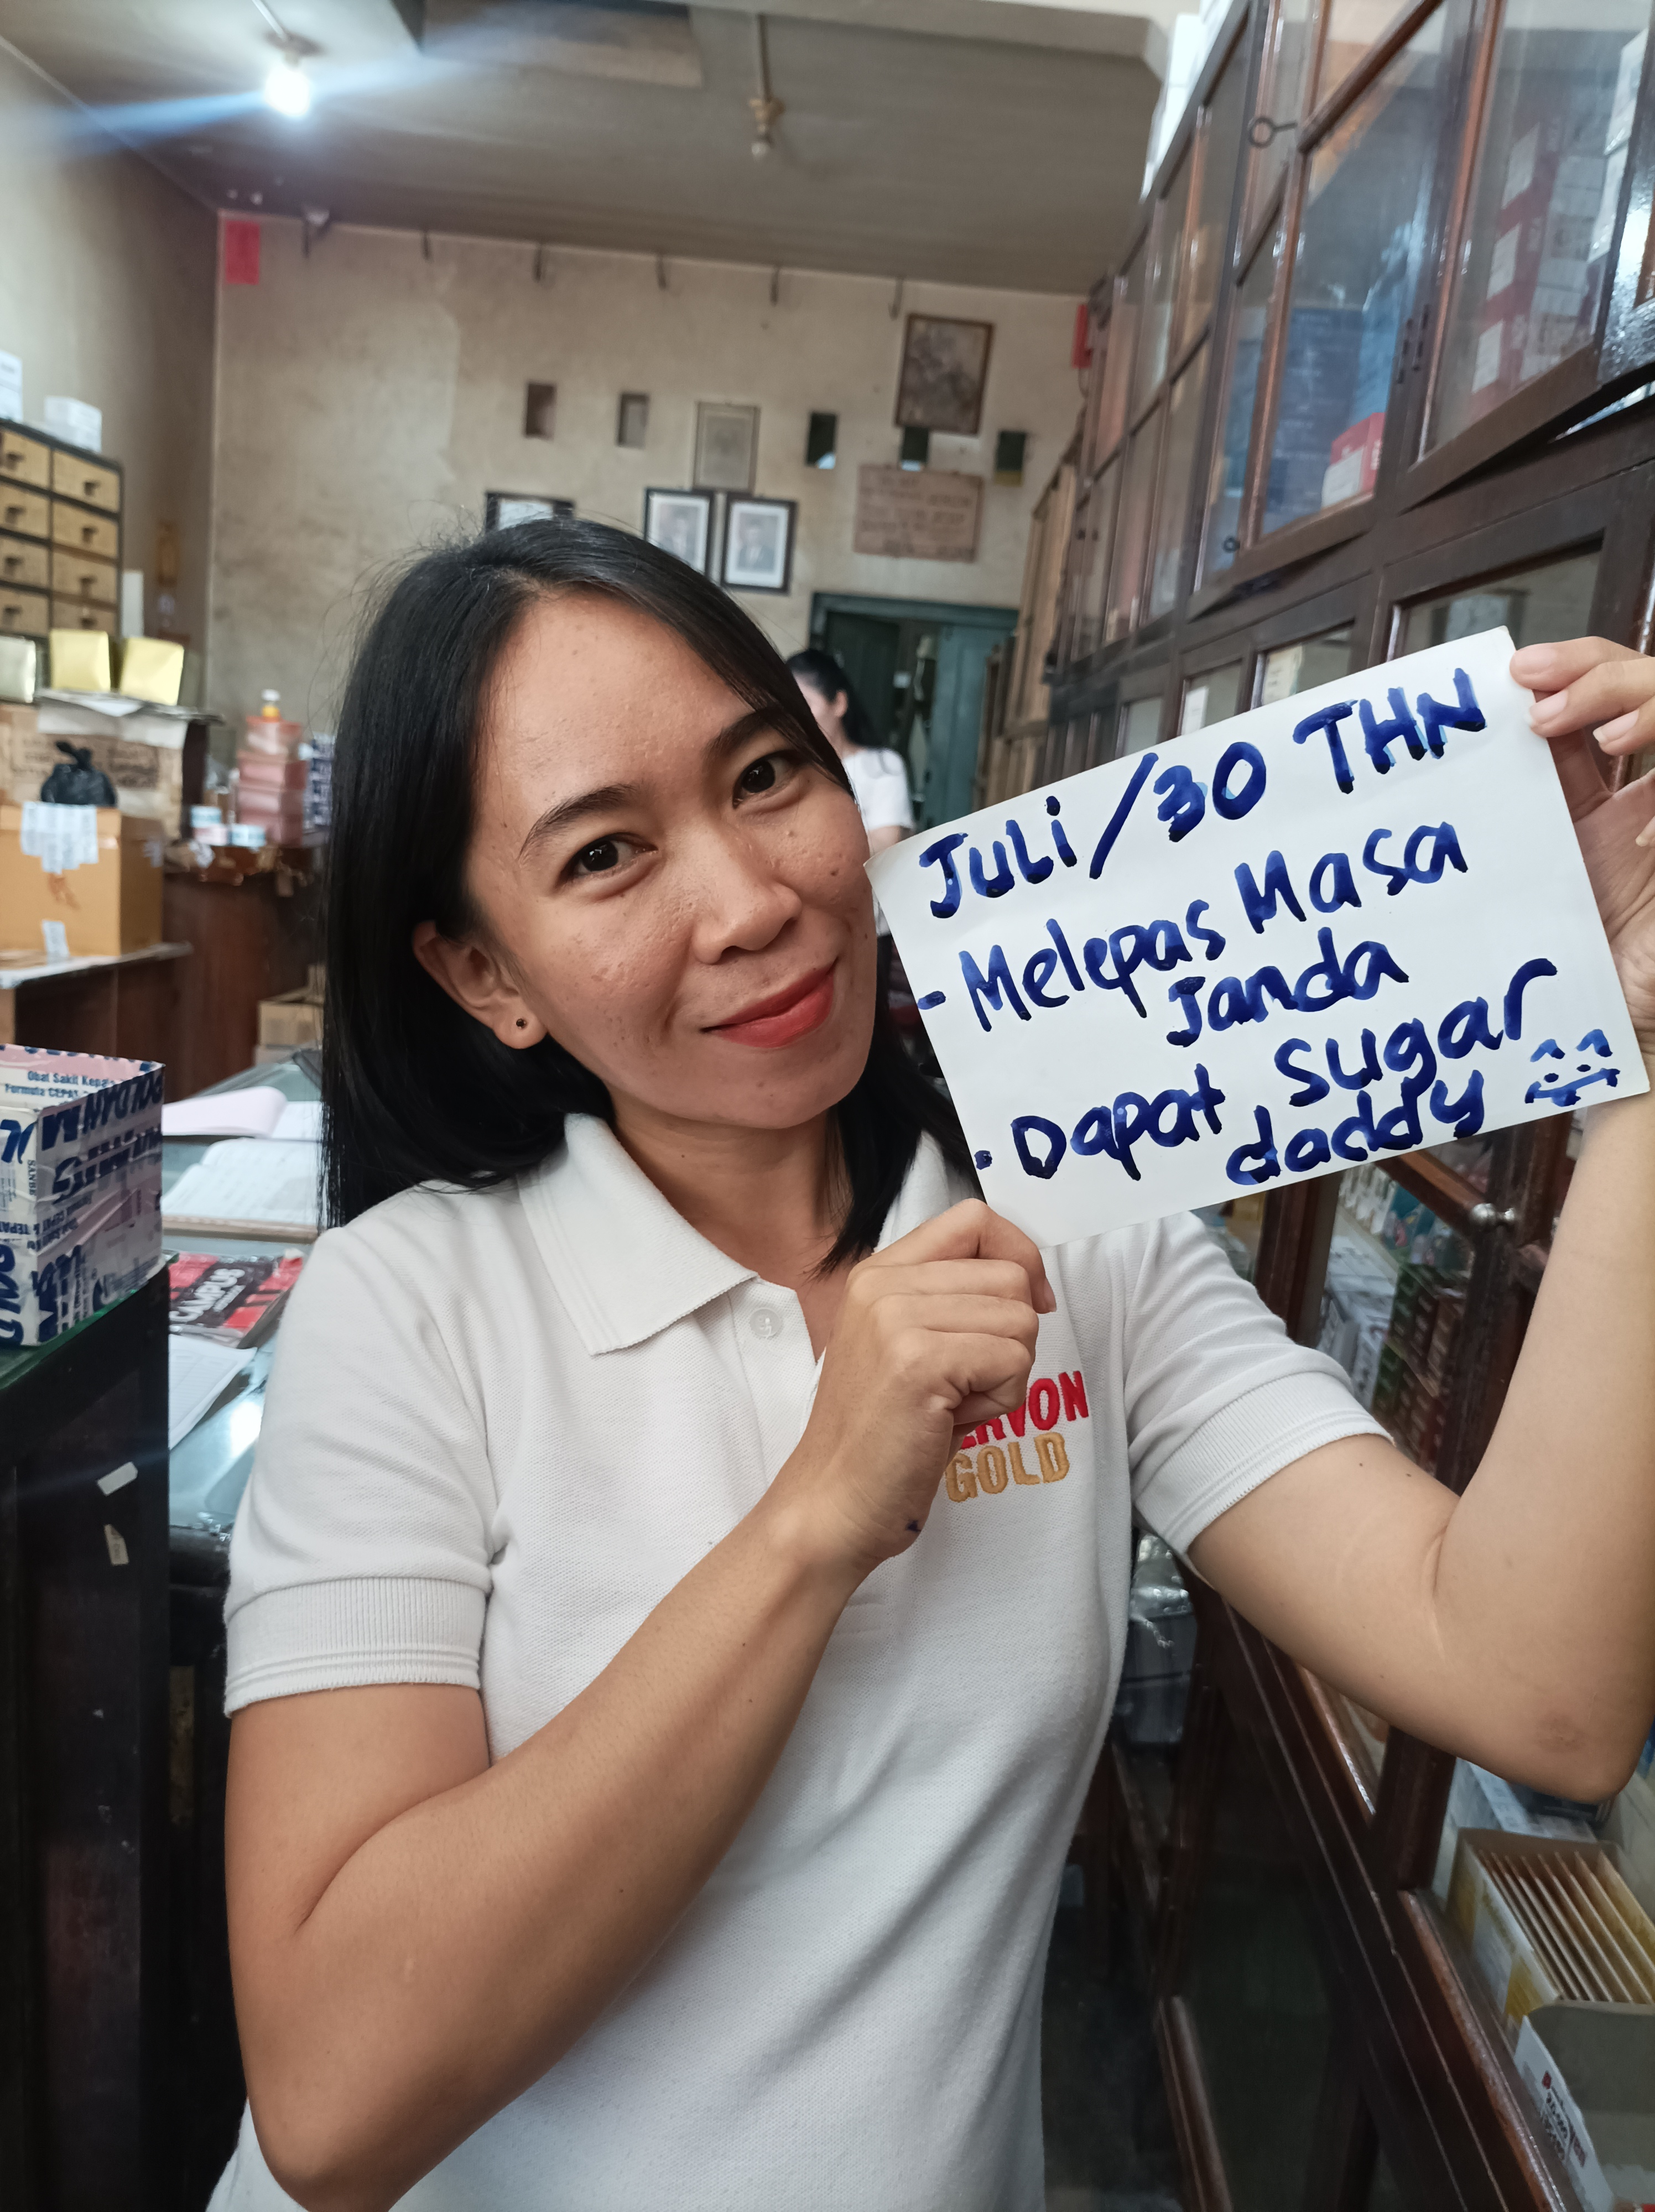 JULi/30 THN
- Melepas Masa
Janda
. Dapat sugar
daddy
GOLD
Obat Sakit Kepala
CAMPUS